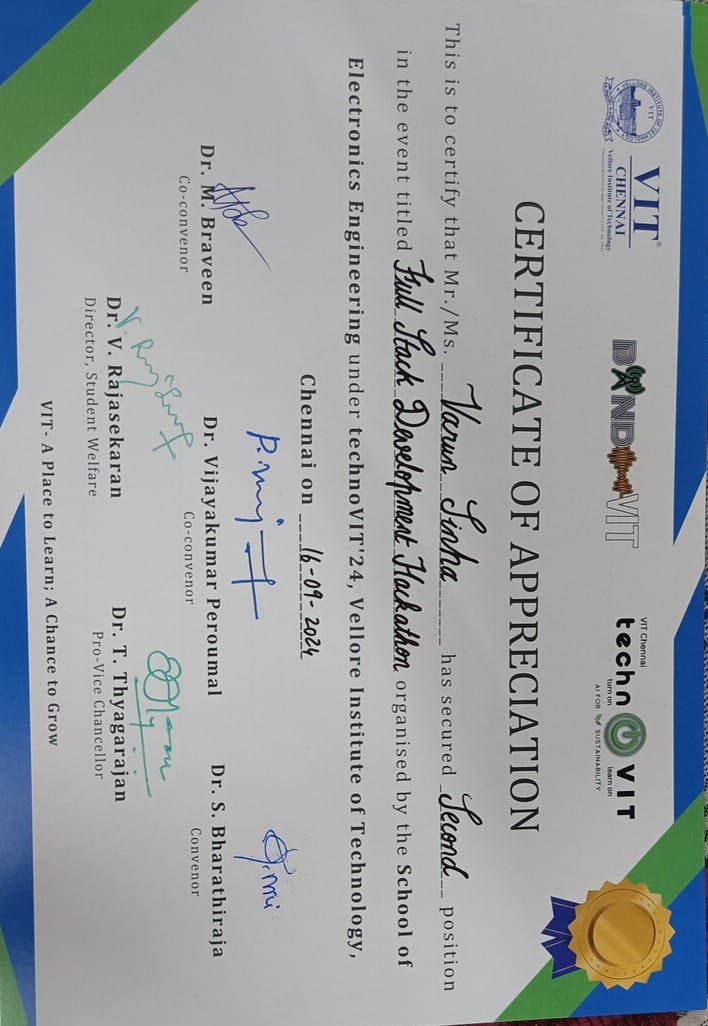 VIT
CHENNAI
Vellore Institute of Technology
BAND VIT
VIT Chennai
techno VIT
turn on learn on
AI FOR SUSTAINABILITY
CERTIFICATE OF APPRECIATION
This is to certify that Mr./Ms. Varun Sinha has secured Second position
in the event titled Full Stack Development Hackathon organised by the School of
Electronics Engineering under technoVIT'24, Vellore Institute of Technology,
Chennai on 16-09-2024
Dr. M. Braveen
Co-convenor
Dr. Vijayakumar Peroumal
Co-convenor
Dr. S. Bharathiraja
Convenor
Dr. V. Rajasekaran
Director, Student Welfare
Dr. T. Thyagarajan
Pro-Vice Chancellor
VIT- A Place to Learn; A Chance to Grow